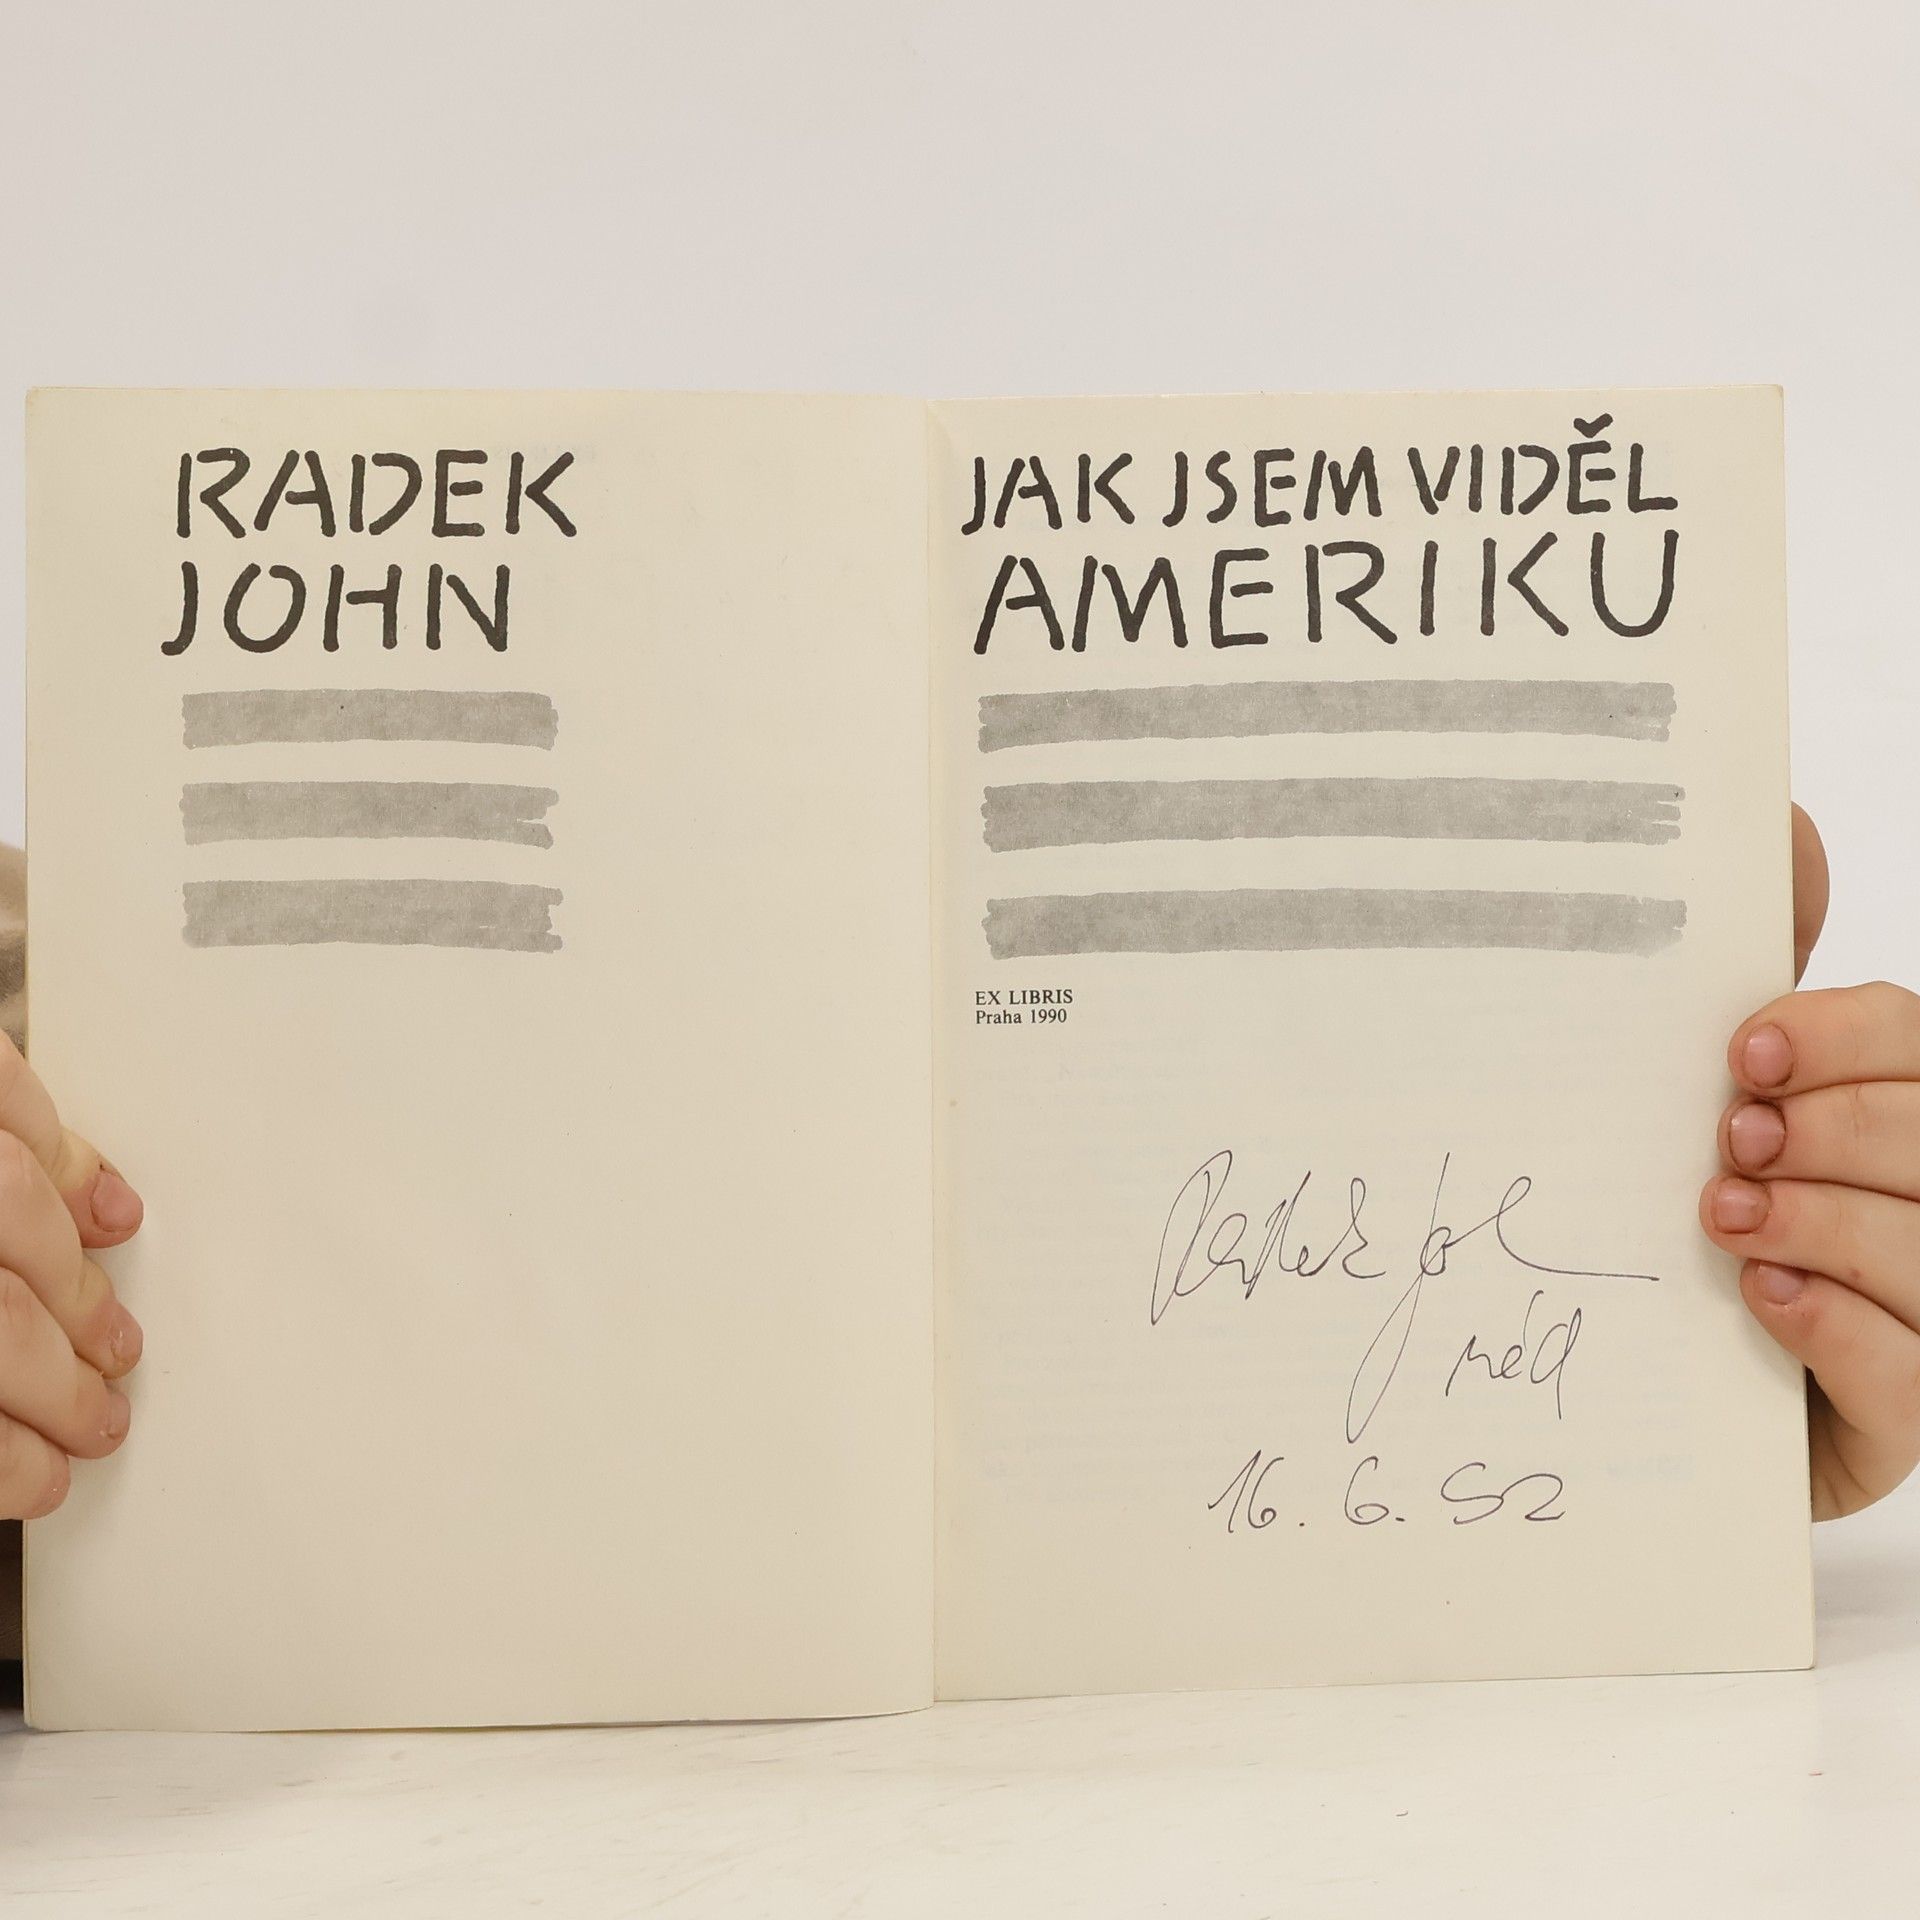 RADEK
JOHN
JAK JSEM VIDĚL
AMERIKU
EX LIBRIS
Praha 1990
Radek Joh
16. 6. 92